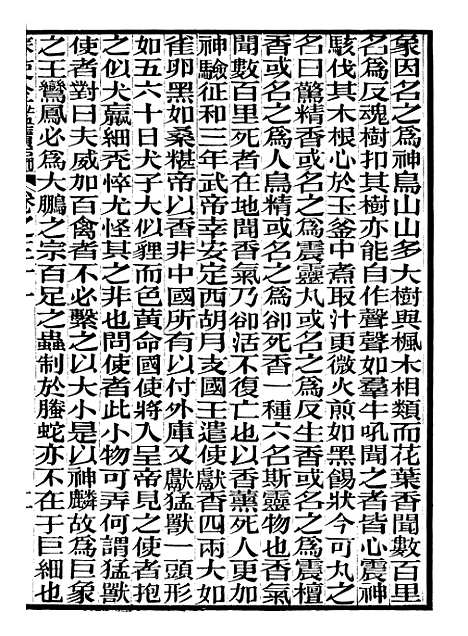 象因名之爲神鳥山山多大樹與楓木相類而花葉香聞數百里
名爲反魂樹扣其樹亦能自作聲聲如羣牛吼聞之者皆心震神
駭伐其木根心於玉釜中煮取汁更微火煎如黑餳狀今可丸之
名曰驚精香或名之爲震靈丸或名之爲反生香或名之爲震檀
香或名之爲人鳥精或名之爲卻死香一種六名斯靈物也香氣
聞數百里死者在地聞香氣乃卻活不復亡也以香薰死人更加
神驗征和三年武帝幸安定西胡月支國王遣使獻香四兩大如
雀卵黑如桑椹帝以香非中國所有以付外庫又獻猛獸一頭形
如五六十日犬子大似貍而色黃命國使將入呈帝見之使者抱
之似犬羸細禿悴尤怪其之非也問使者此小物可弄何謂猛獸
使者對曰夫威加百禽者不必繫之以大小是以神麟故爲巨象
之王鸞鳳必爲大鵬之宗百足之蟲制於螣蛇亦不在于巨細也